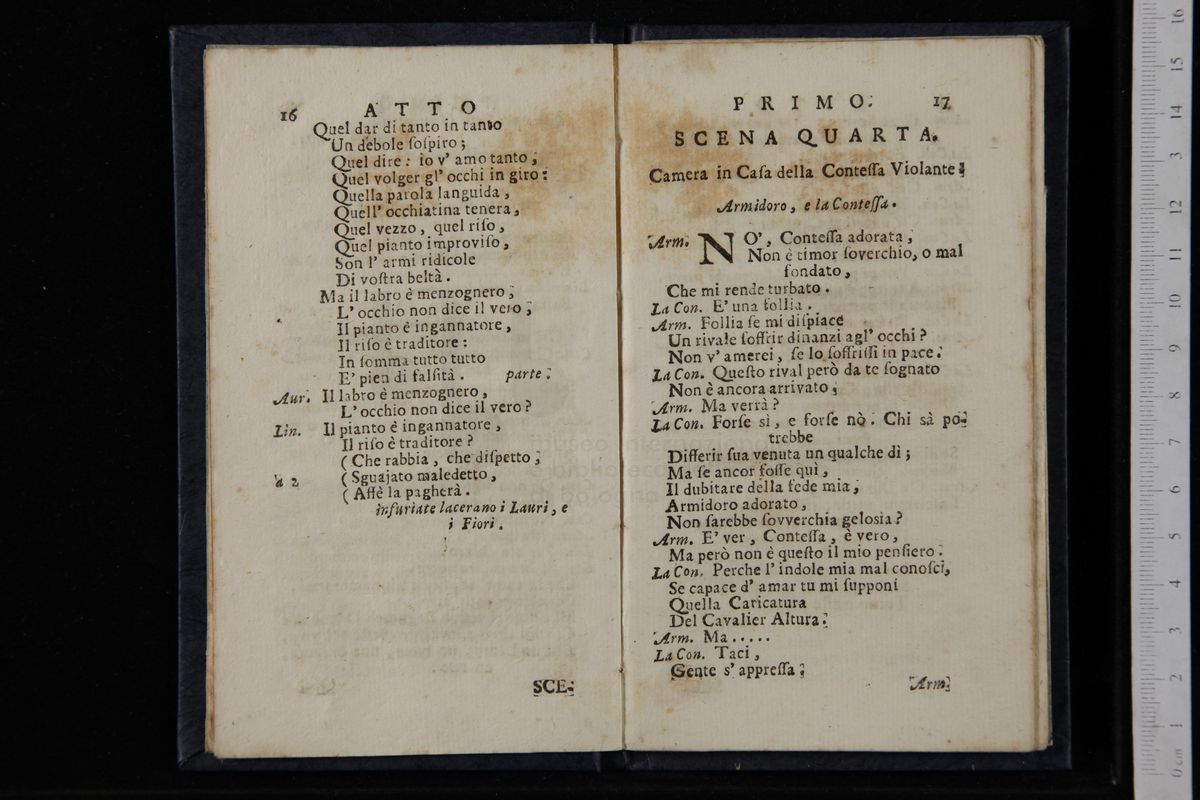 16 ATTO
Quel dar di tanto in tanto
Un debole ſoſpiro;
Quel dire: io v' amo tanto;
Quel volger gl' occhi in giro:
Quella parola languida,
Quell' occhiatina tenera,
Quel vezzo, quel riſo,
Quel pianto improviſo,
Son l' armi ridicole
Di voſtra beltà.
Ma il labro è menzognero;
L' occhio non dice il vero;
Il pianto è ingannatore,
Il riſo è traditore:
In ſomma tutto tutto
E' pien di falſità. parte.
Aur. Il labro è menzognero,
L' occhio non dice il vero?
Lin. Il pianto è ingannatore,
Il riſo è traditore?
(Che rabbia, che diſpetto;
a 2 (Sguajato maledetto,
(Affè la pagherà.
infuriate lacerano i Lauri, e
i Fiori.
SCE-
PRIMO. 17
SCENA QUARTA.
Camera in Caſa della Conteſſa Violante.
Armidoro, e la Conteſſa.
Arm. NO', Conteſſa adorata,
Non è timor ſoverchio, o mal
fondato,
Che mi rende turbato.
La Con. E' una follia.
Arm. Follia ſe mi diſpiace
Un rivale ſoffrir dinanzi agl' occhi?
Non v' amerei, ſe lo ſoffriſſi in pace.
La Con. Queſto rival però da te ſognato
Non è ancora arrivato;
Arm. Ma verrà?
La Con. Forſe sì, e forſe nò. Chi sà po-
trebbe
Differir ſua venuta un qualche dì;
Ma ſe ancor foſſe quì,
Il dubitare della fede mia,
Armidoro adorato,
Non ſarebbe ſovverchia geloſia?
Arm. E' ver, Conteſſa, è vero,
Ma però non è queſto il mio penſiero.
La Con. Perche l' indole mia mal conoſci,
Se capace d' amar tu mi ſupponi
Quella Caricatura
Del Cavalier Altura.
Arm. Ma.....
La Con. Taci,
Gente s' appreſſa.
Arm.